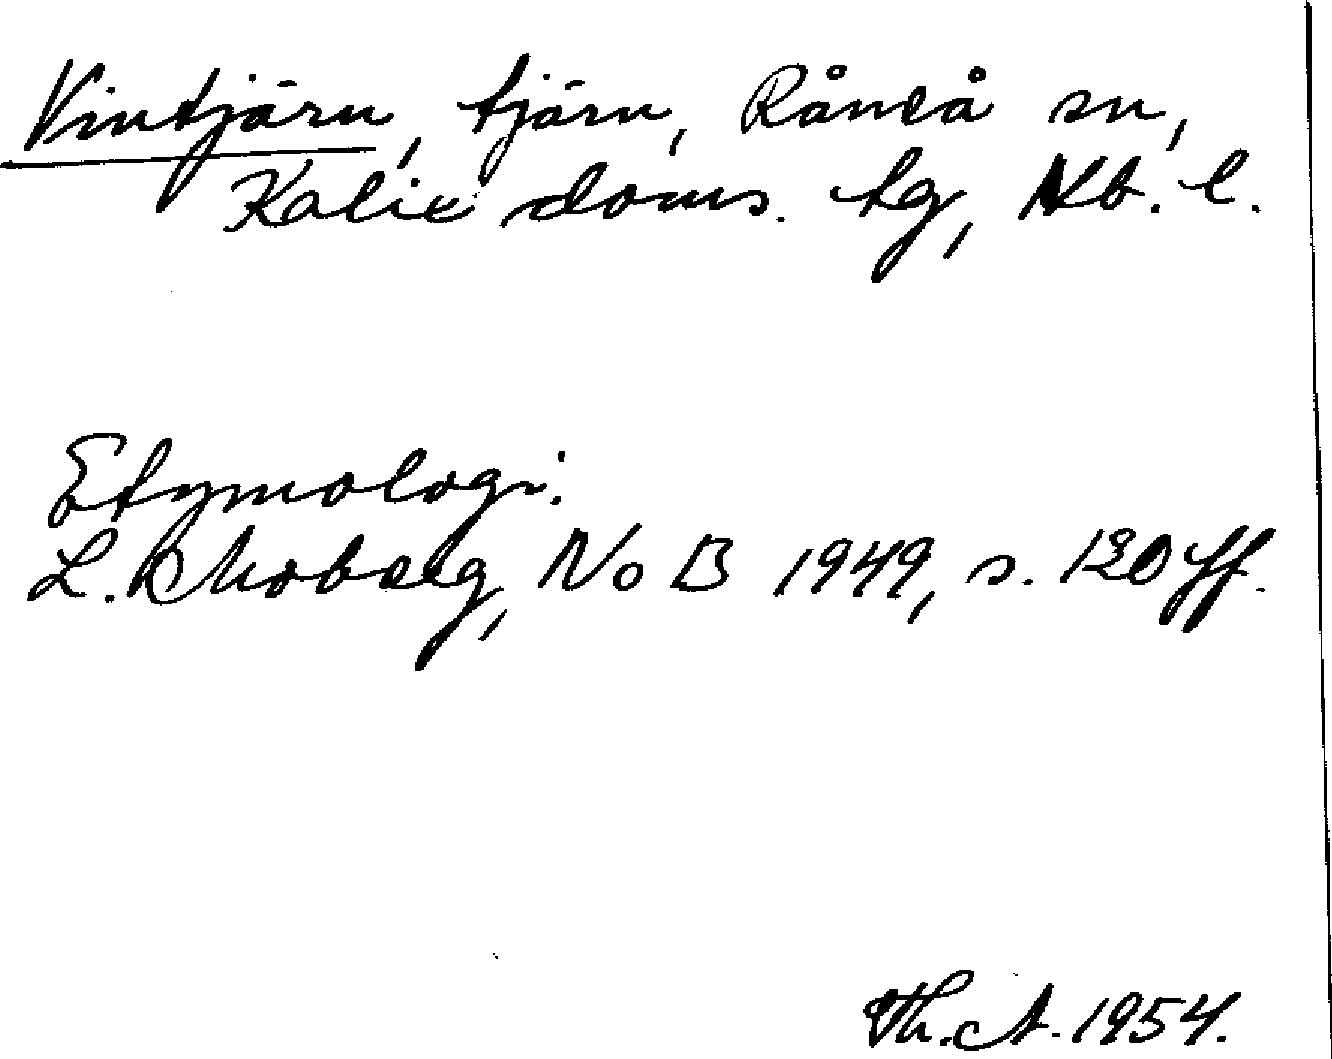 Vintjärn, tjärn, Råneå sn,
Kalix doms. tg, Nb. l.
Etymologi.
L. Moberg, NoB 1949, s. 120 ff.
Th. A. 1954.